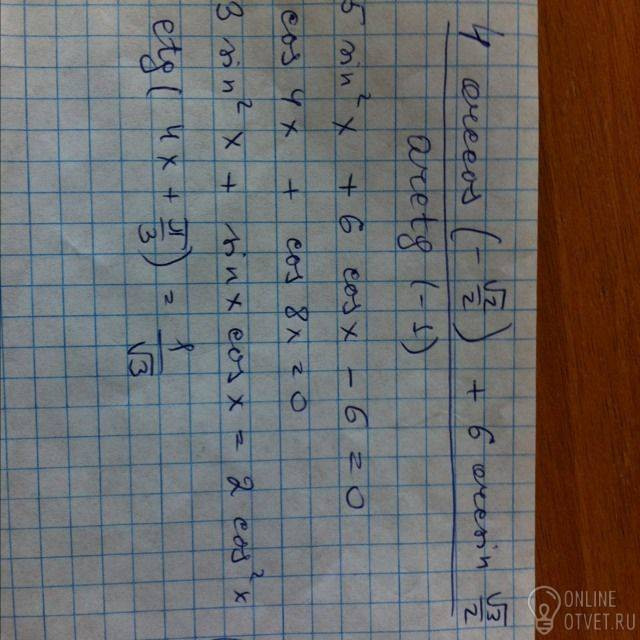 4 arccos (-√2/2) + 6 arcsin √3/2
arctg (-1)
5 sin²x + 6 cosx - 6 = 0
cos 4x + cos 8x = 0
3 sin²x + sinx cosx = 2 cos²x
ctg (4x + π/3) = 1/√3
ONLINE
OTVET.RU